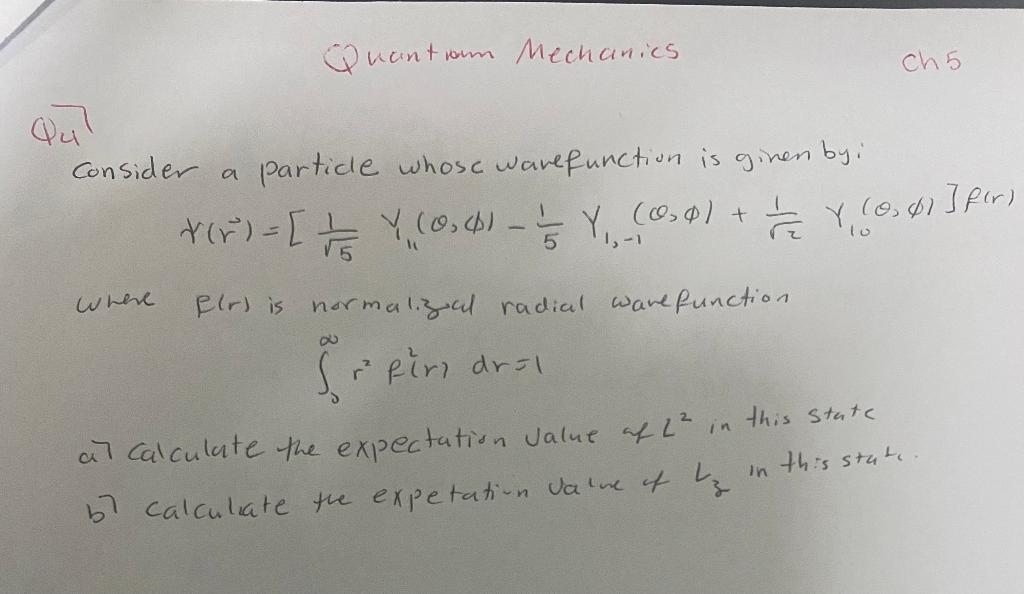 Quantum Mechanics
Ch 5
Q4]
Consider a particle whose wavefunction is given by:
Ψ(r⃗) = [ 1/√5 Y₁₁(θ,φ) − 1/5 Y₁,₋₁(θ,φ) + 1/√2 Y₁₀(θ,φ) ] f(r)
where f(r) is normalized radial wavefunction
∫₀^∞ r² f²(r) dr = 1
a] Calculate the expectation value of L² in this state
b] calculate the expetation value of L_z in this state.